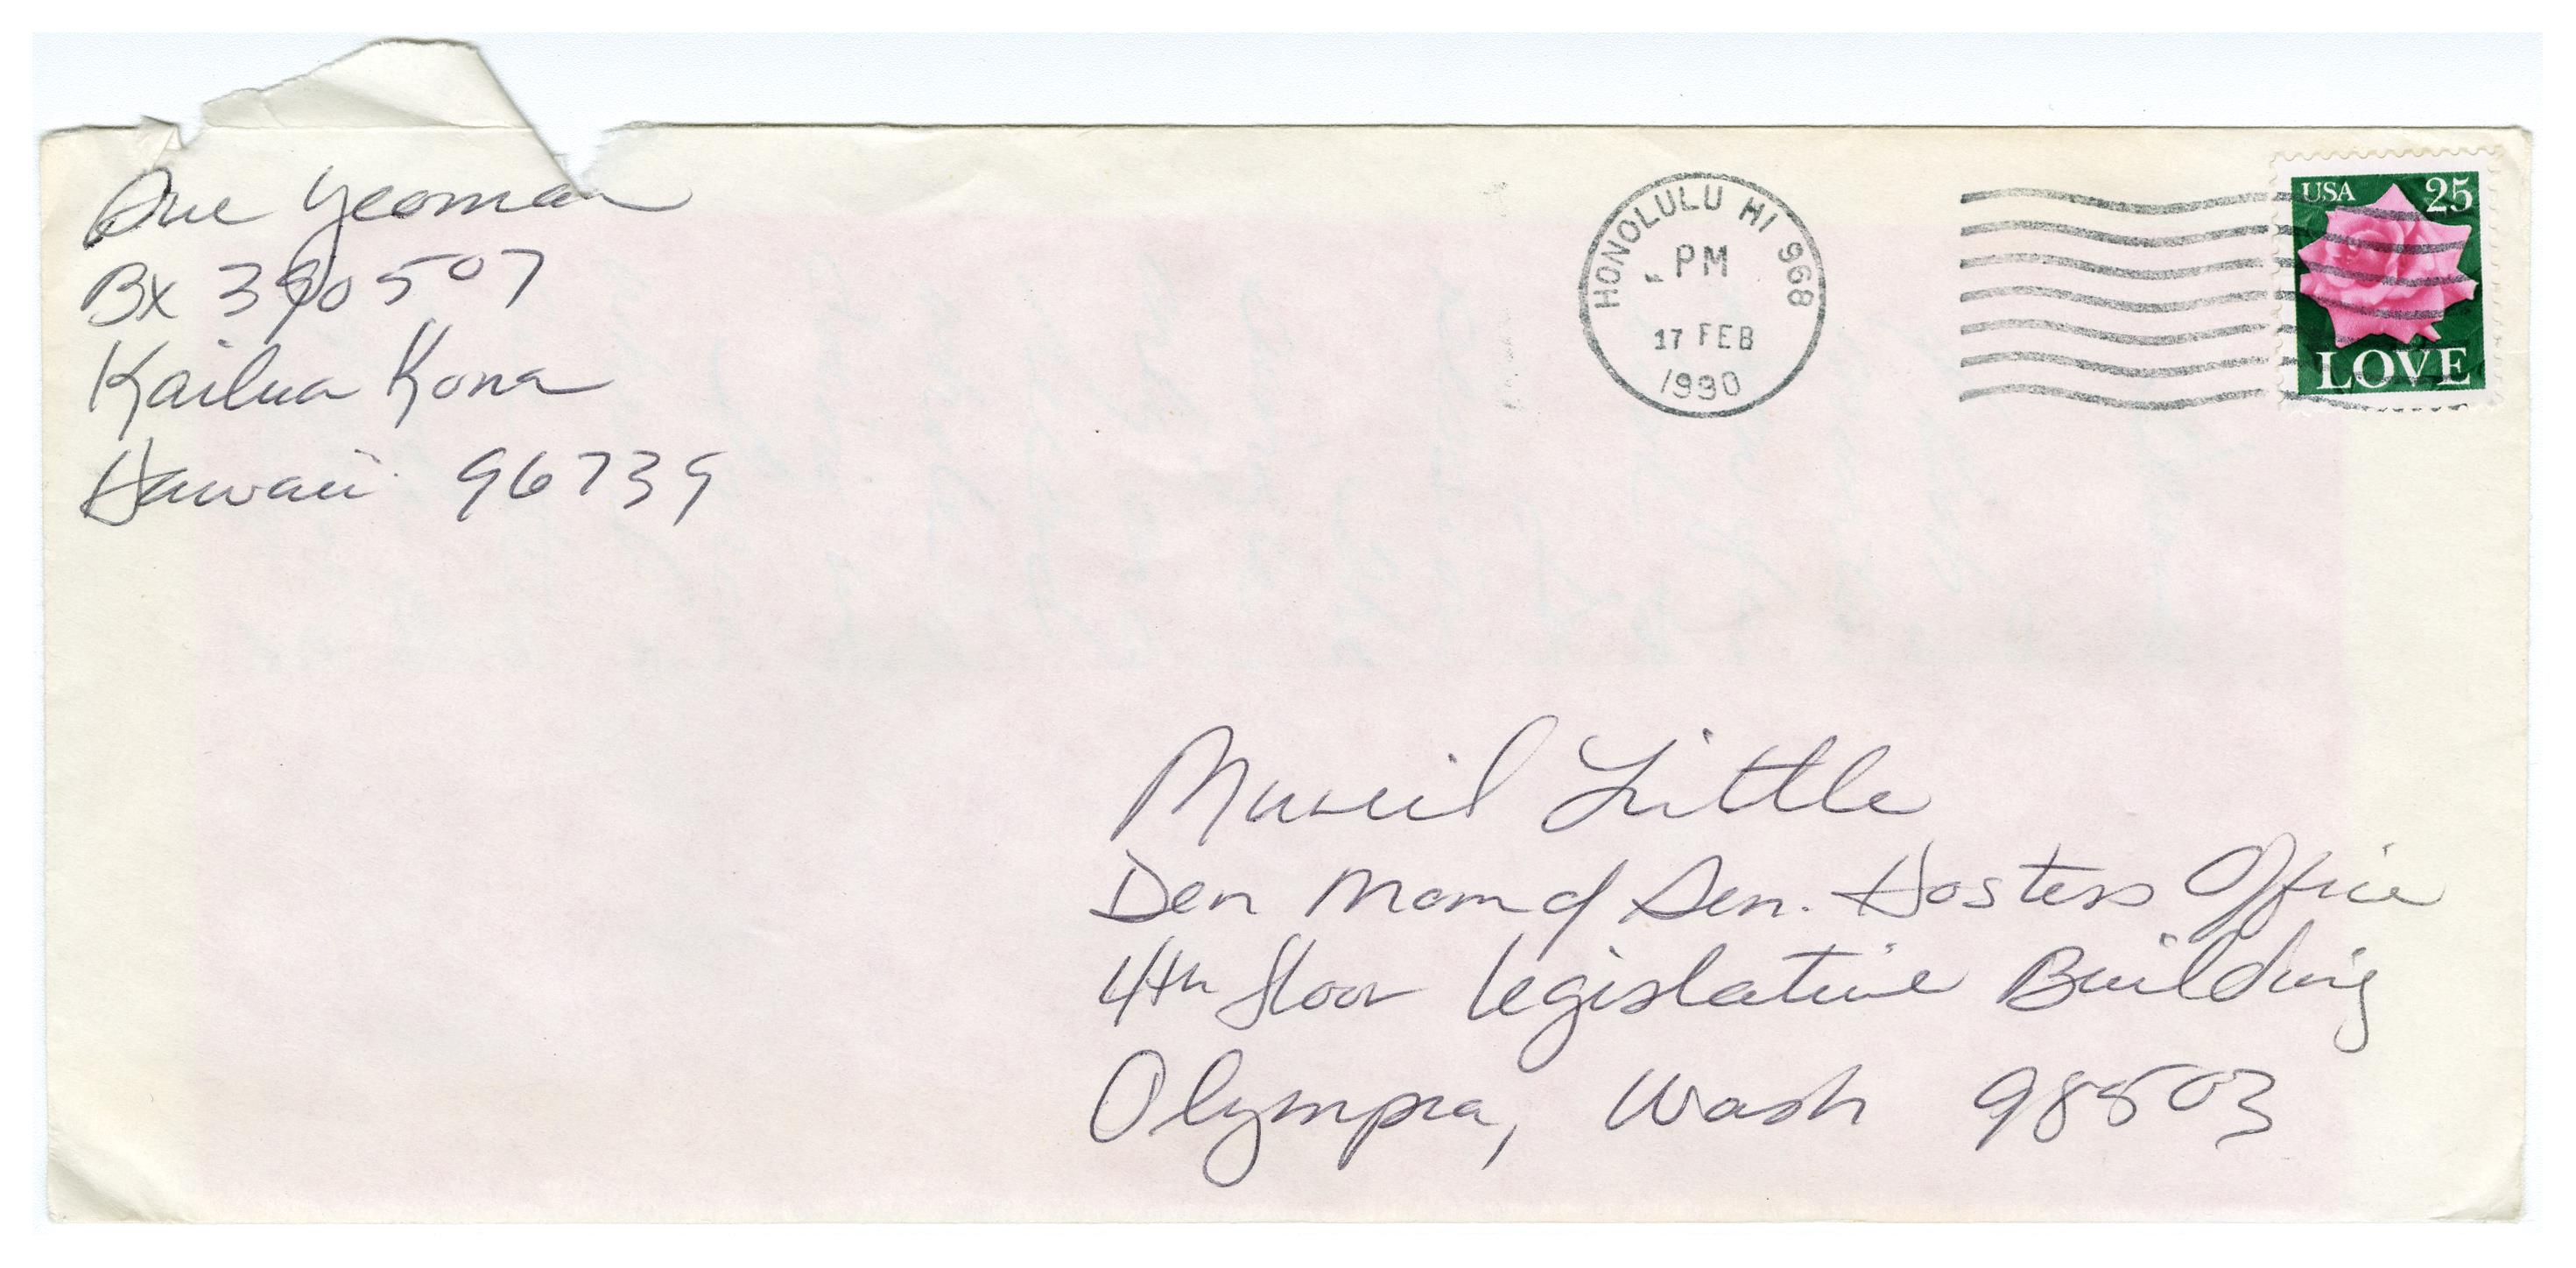 Sue Yeoman
Bx 390507
Kailua Kona
Hawaii 96739
HONOLULU HI 968
PM
17 FEB
1990
USA 25
LOVE
Muriel Little
Den Mom of Sen. Hostess Office
4th floor Legislative Building
Olympia, Wash 98503